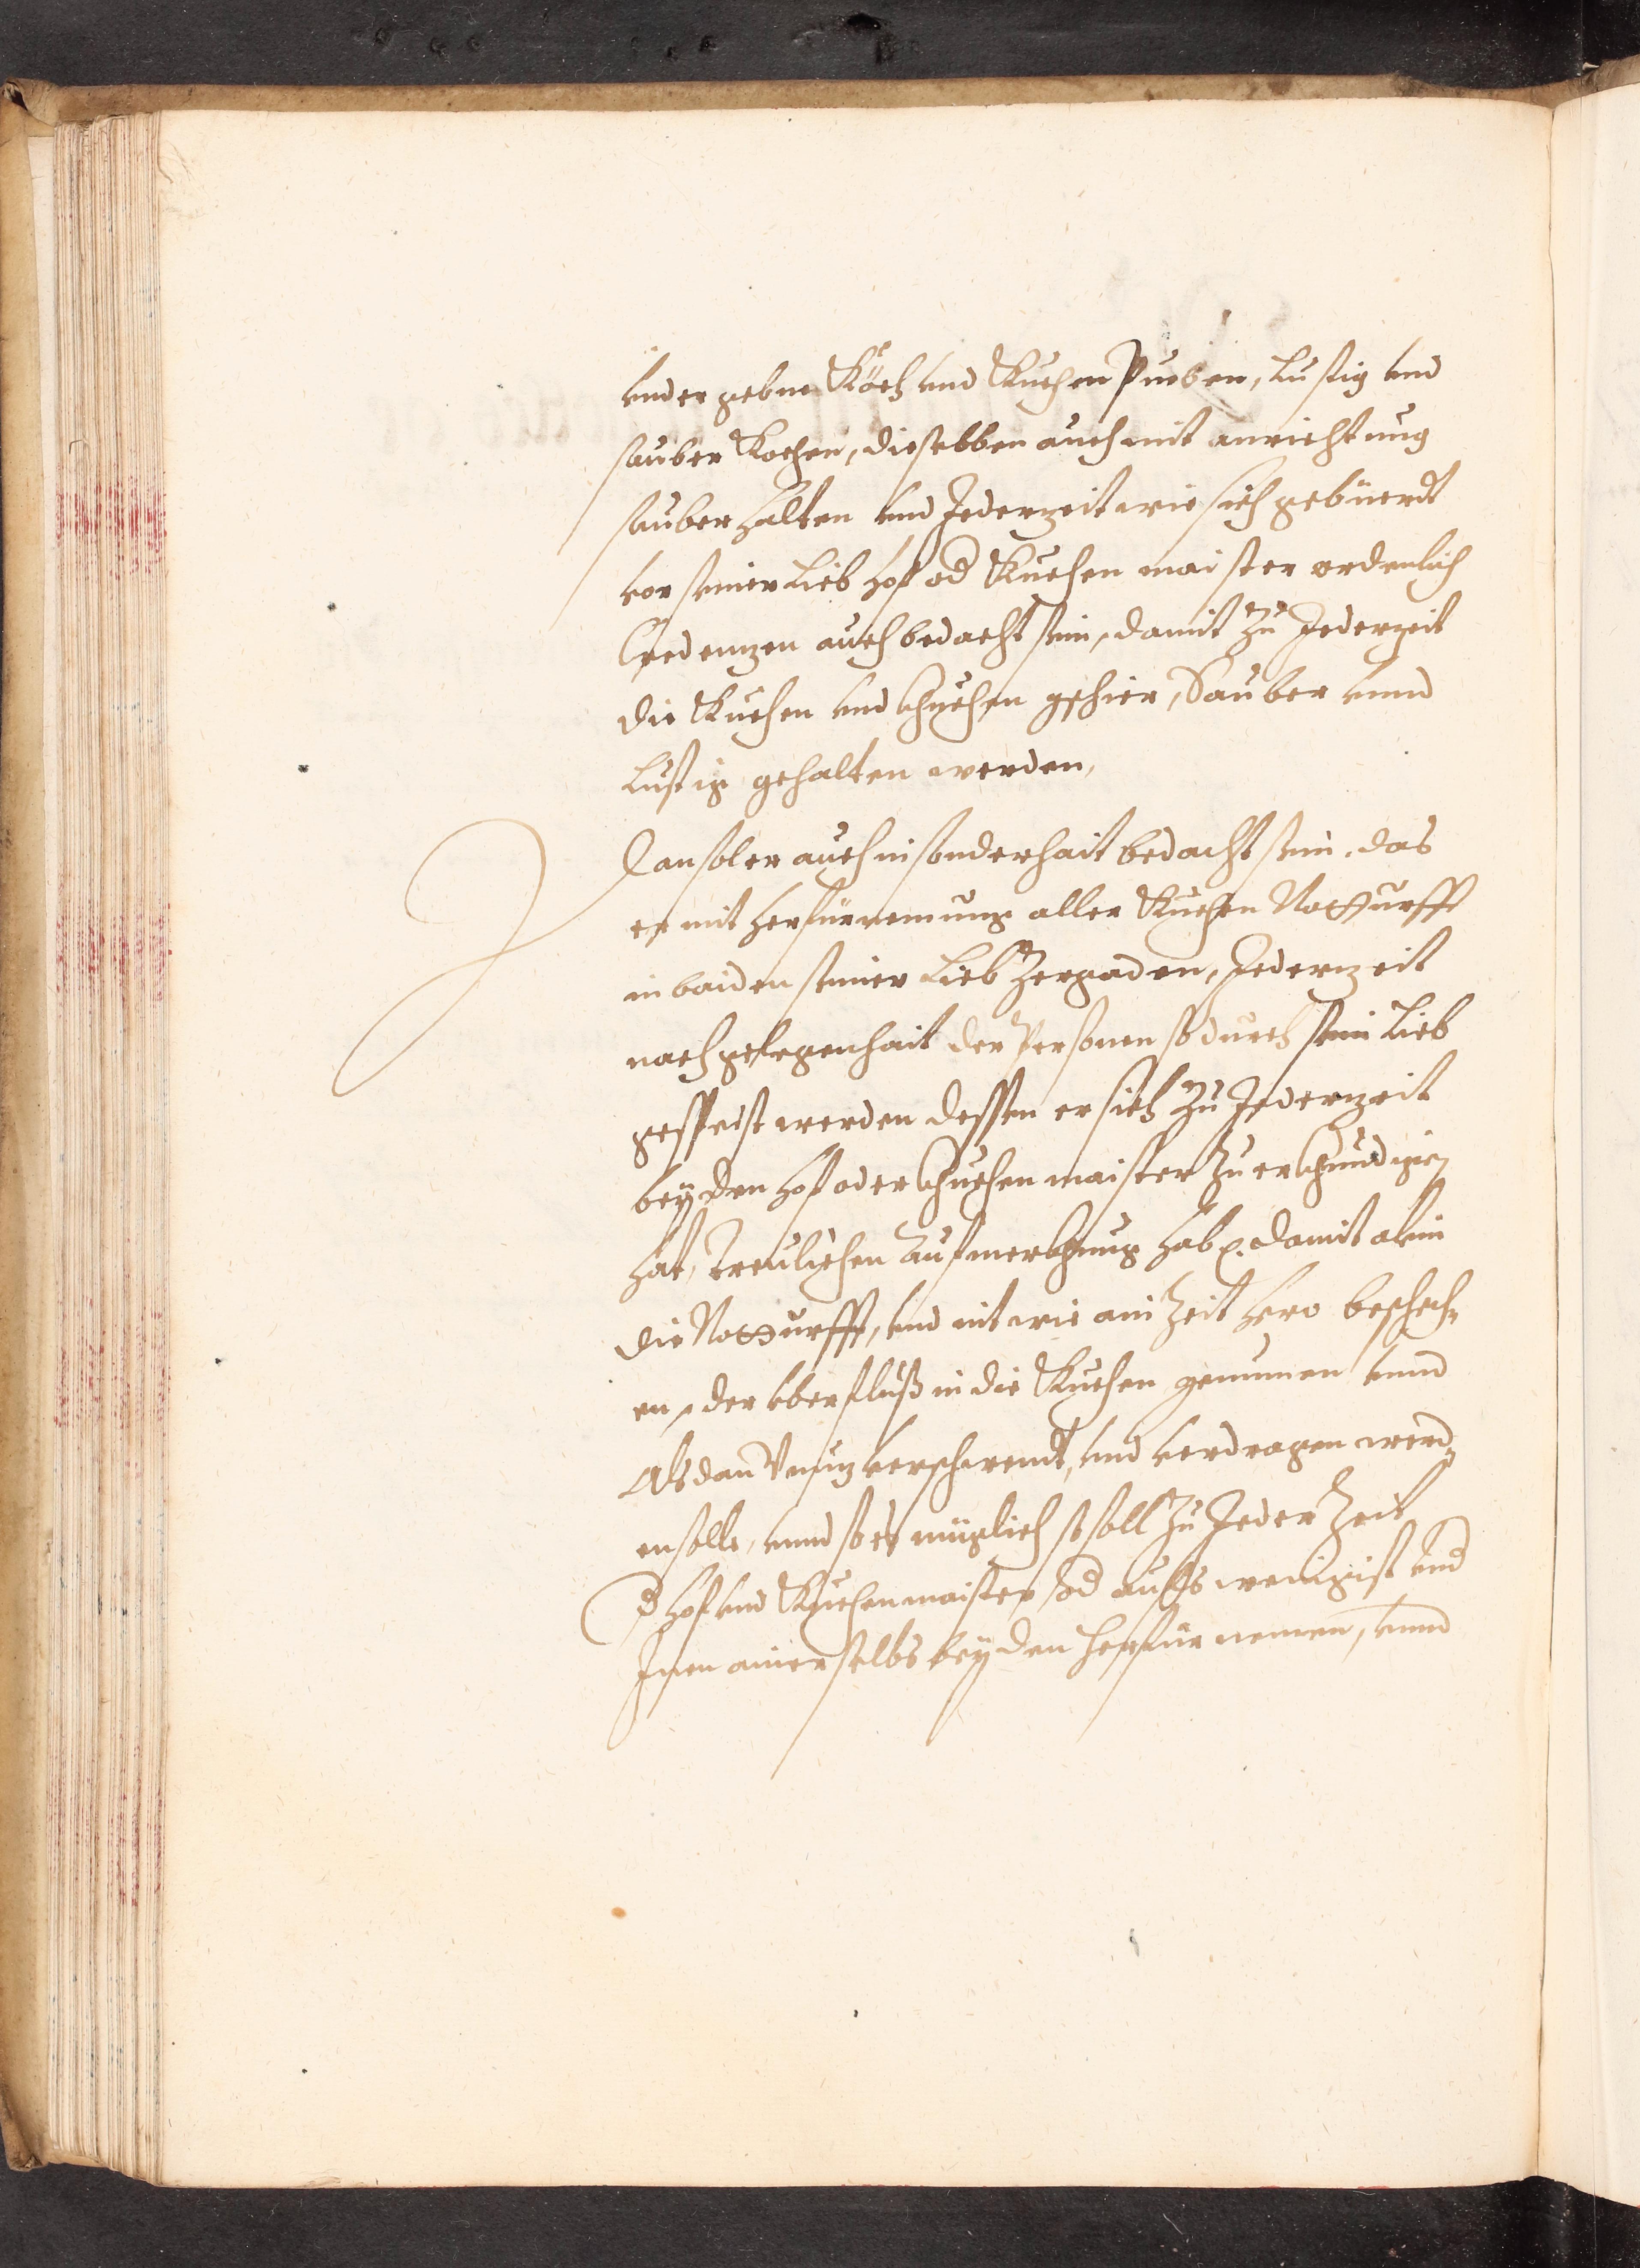 undergebne Köch und Kuchen Pueben, lustig und
sauber Kochen, dieselbben auch mit anrichtung
sauber halten und Jederzeit wie sich gebüerdt
vor seiner Lieb hof od Kuchen maister ordenlich
Credenzen auch bedacht sein, damit Zu Jederzeit
die Kuchen und khuchen gschier, Sauber unnd
Lustig gehalten werden,
Dan soler auch in sonderhait bedacht sein. das
er mit herfürnemung aller Kuchen Notturfft
in baiden seiner Lieb Zergaden, Jederzeit
nach gelegenhait der Personen so durch sein Lieb
gespeist werden dessen er sich Zu Jederzeit
bey den hof oder khuchen maister Zu erkhundigen
hat, treulichen aufmerkhung hab, damit alein
die Notturfft, und nit wie ain Zeit hero beschech„
en, der Uberfluß in die Kuchen genumen unnd
Alsdan Unnuz verschwendt, und verdragen werd„
en solle, unnd so es müglich so soll Zu Jeder Zeit
d hof und Kuchenmaister od aufs wenigist und
Inen ainer selbs bey den herfür nemen, unnd